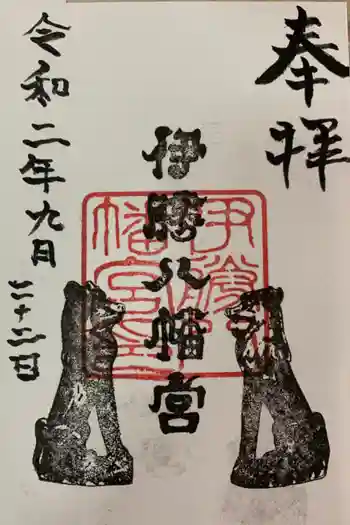 奉拝
伊勝八幡宮
伊勝八幡宮
令和二年九月
二十二日